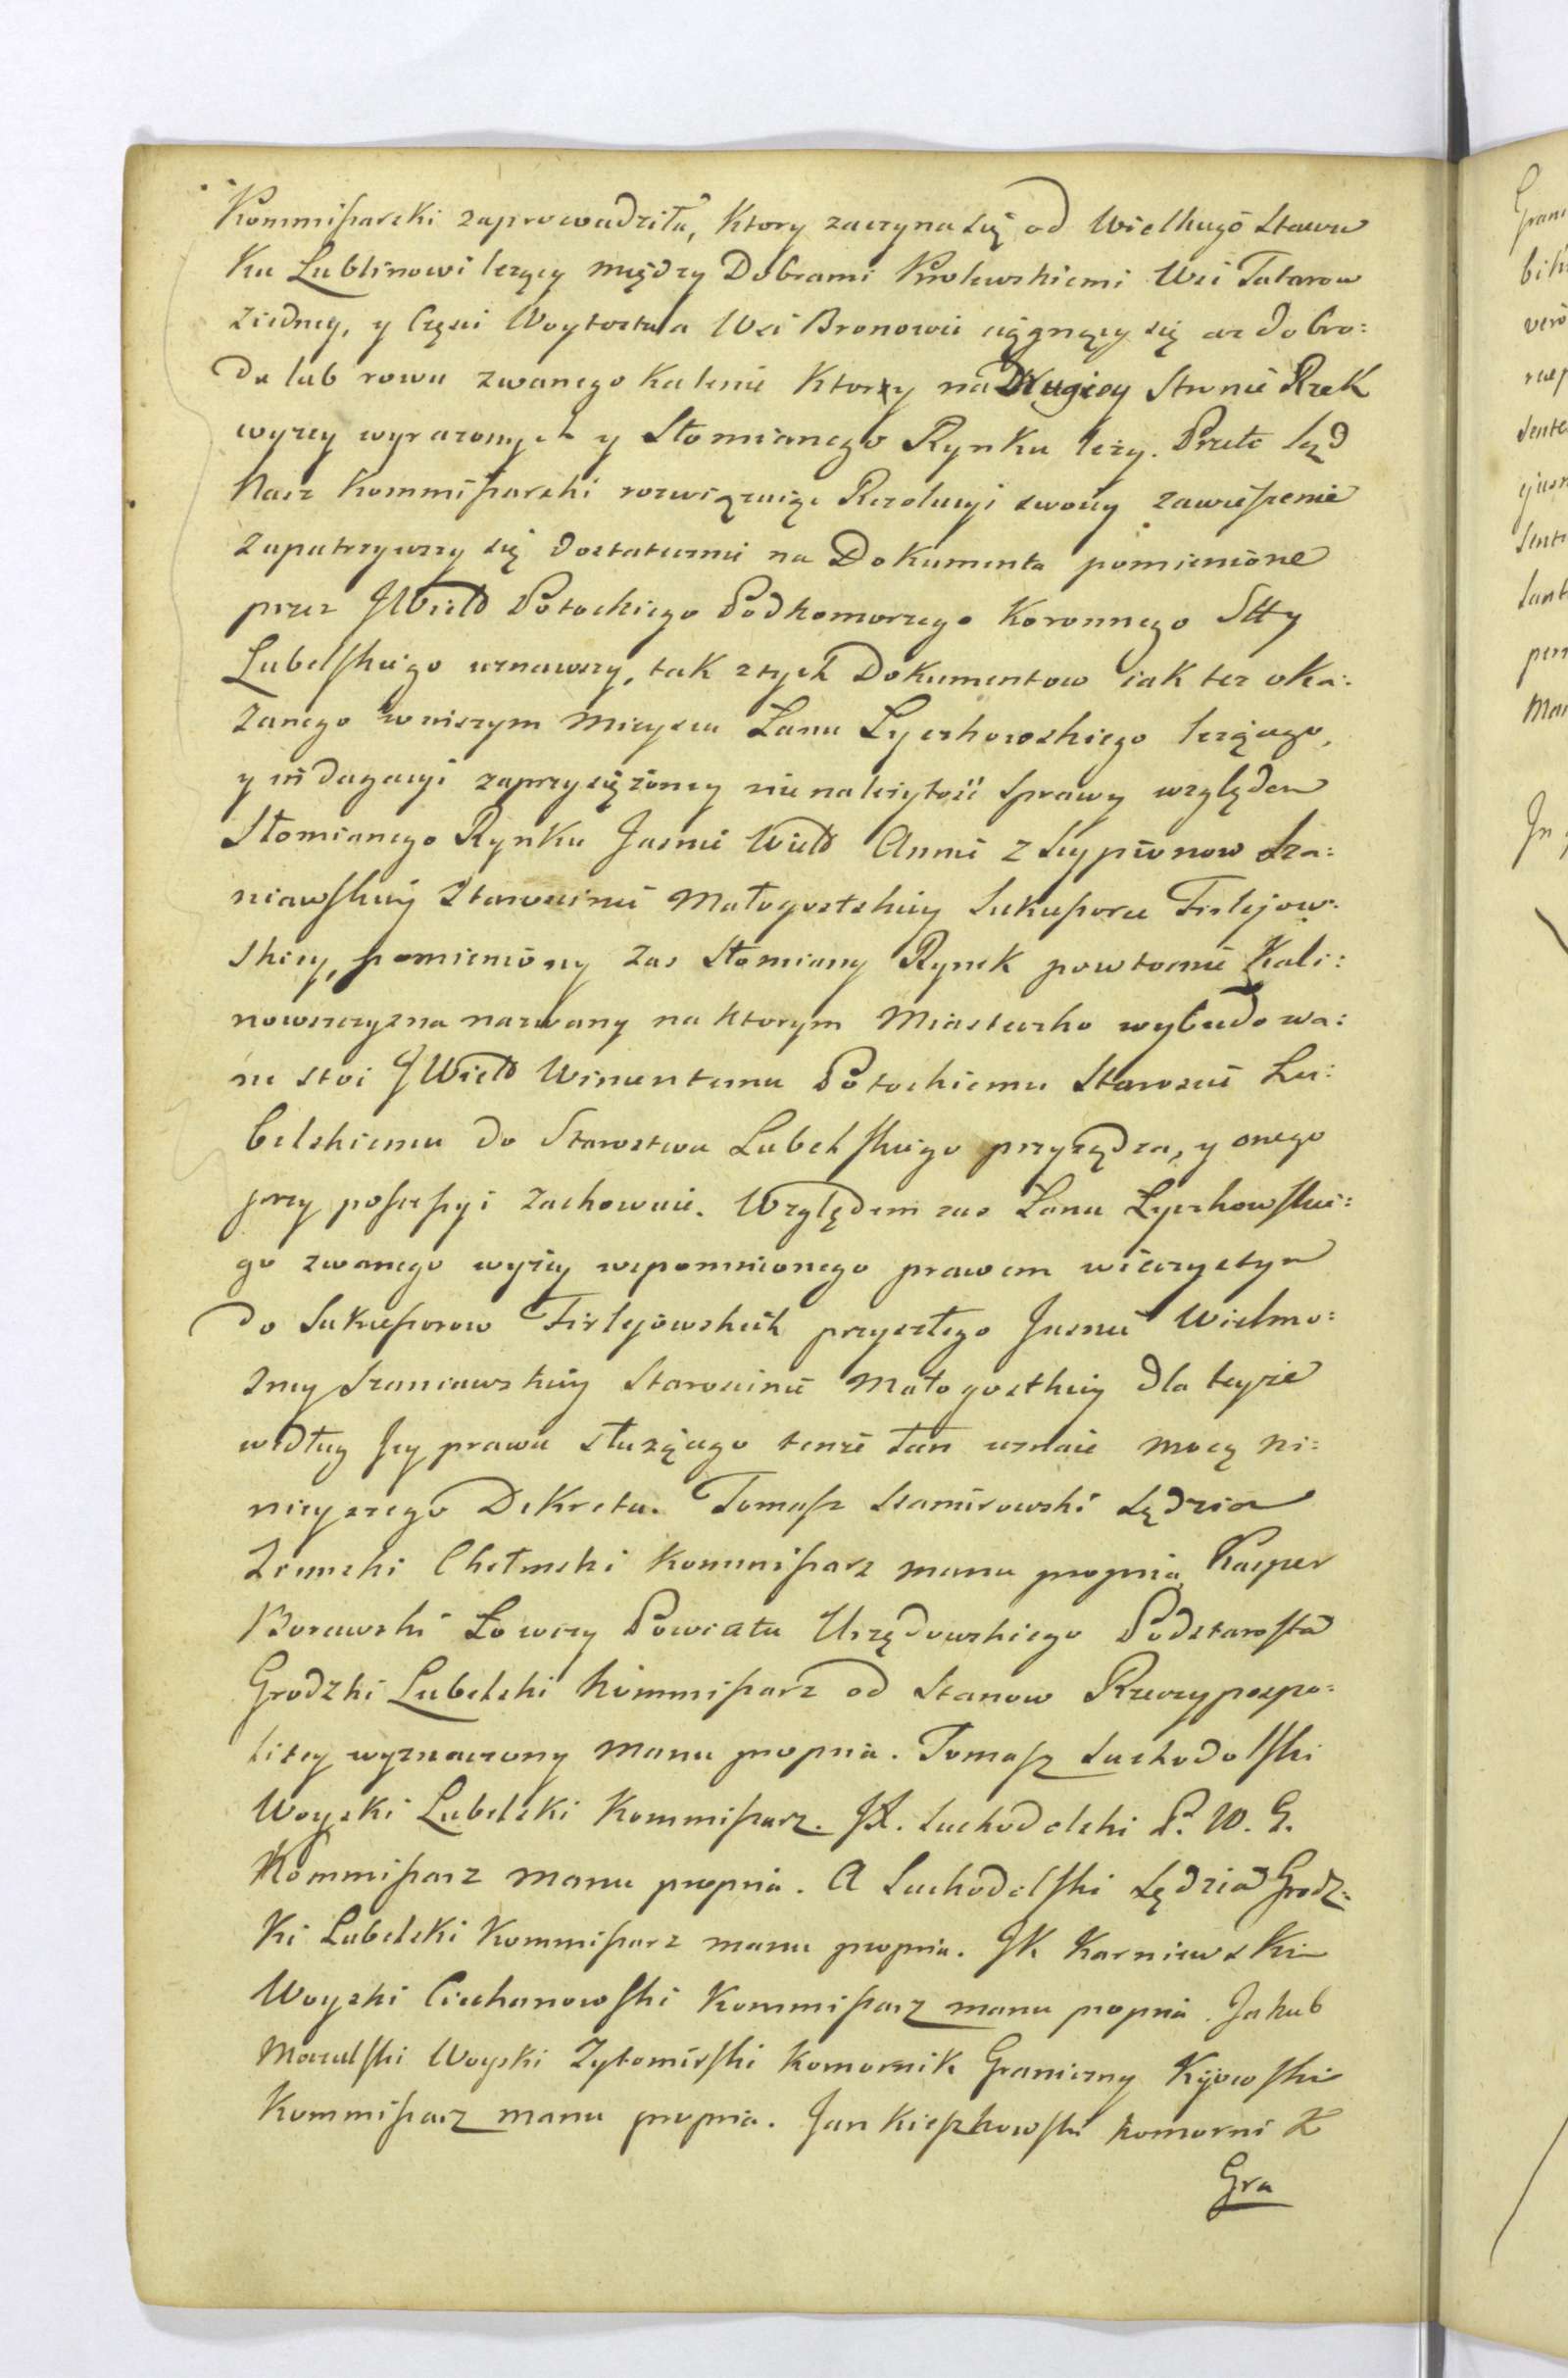 Kommissarski zaprowadziła, Ktory zaczyna się od Wielkiego Stawu
Ku Lublinowi lezący między Dobrami Krolewskiemi Wsi Tatarow
ziedney, y Częsci Woytostwa Wsi Bronowic ciągnący się az do bro:
du lub rowu zwanego Kalenie Ktory na Drugiey Stronie Rzek
wyzey wyrazonych y Słomianego Rynku lezy. Przeto Sąd
Nasz Kommissarski rozwięzuiąc Rezolucyi swoiey zawieszenie
zapatrzywszy się dostatecznie na Dokumenta pomienione
przez JWield Potockiego Podkomorzego Koronnego Stty
Lubelskiego uznawszy, tak ztych Dokumentow iak tez oka:
zanego w niszym Mieyscu Łanu Łyczkowskiego lezącego,
y indagacyi zaprzysiężoney nienalezytość Sprawy względem
Słomianego Rynku Jasnie Wield Annie z Scypionow Sza:
niawskiey Starościnie Małogostskiey Sukcessorce Firlejow:
skiey, pomieniony zas Słomiany Rynek powtornie Kali:
nowszczyzna nazwany na Ktorym Miasteczko wybudowa:
ne stoi JWield Wincentemu Potockiemu Staroscie Lu:
belskiemu do Starostwa Lubelskiego przysądza, y onego
przy possessyi zachowuie. Względem zas Łanu Łyczkowskie:
go zwanego wyżey wspomnionego prawem wieczystym
do Sukcessorow Firlejowskich przyszłego Jasnie Wielmo:
zney Szaniawskiey Starościnie Małogostkiey dla teyże
według Jey prawa służącego tenże Łan uznaie mocą ni:
nieyszego Dekretu. Tomasz Stamirowski Sędzia
Ziemski Chełmski Kommissarz manu propria, Kacper
Borawski Łowczy Powiatu Urzędowskiego Podstarosta
Grodzki Lubelski Kommissarz od Stanow Rzeczypospo:
litey wyznaczony manu propria. Tomasz Suchodolski
Woyski Lubelski Kommissarz. JA. Suchodolski P. W. G.
Kommissarz manu propria. A Suchodolski Sędzia Grodz:
Ki Lubelski Kommissarz manu propria. JK Karniewski
Woyski Ciechanowski Kommissarz manu propria. Jakub
Woyski Zytomirski Komornik Graniczny Kijowski
Kommissarz manu propria. Jan Kieszkowski Komornik
Gra